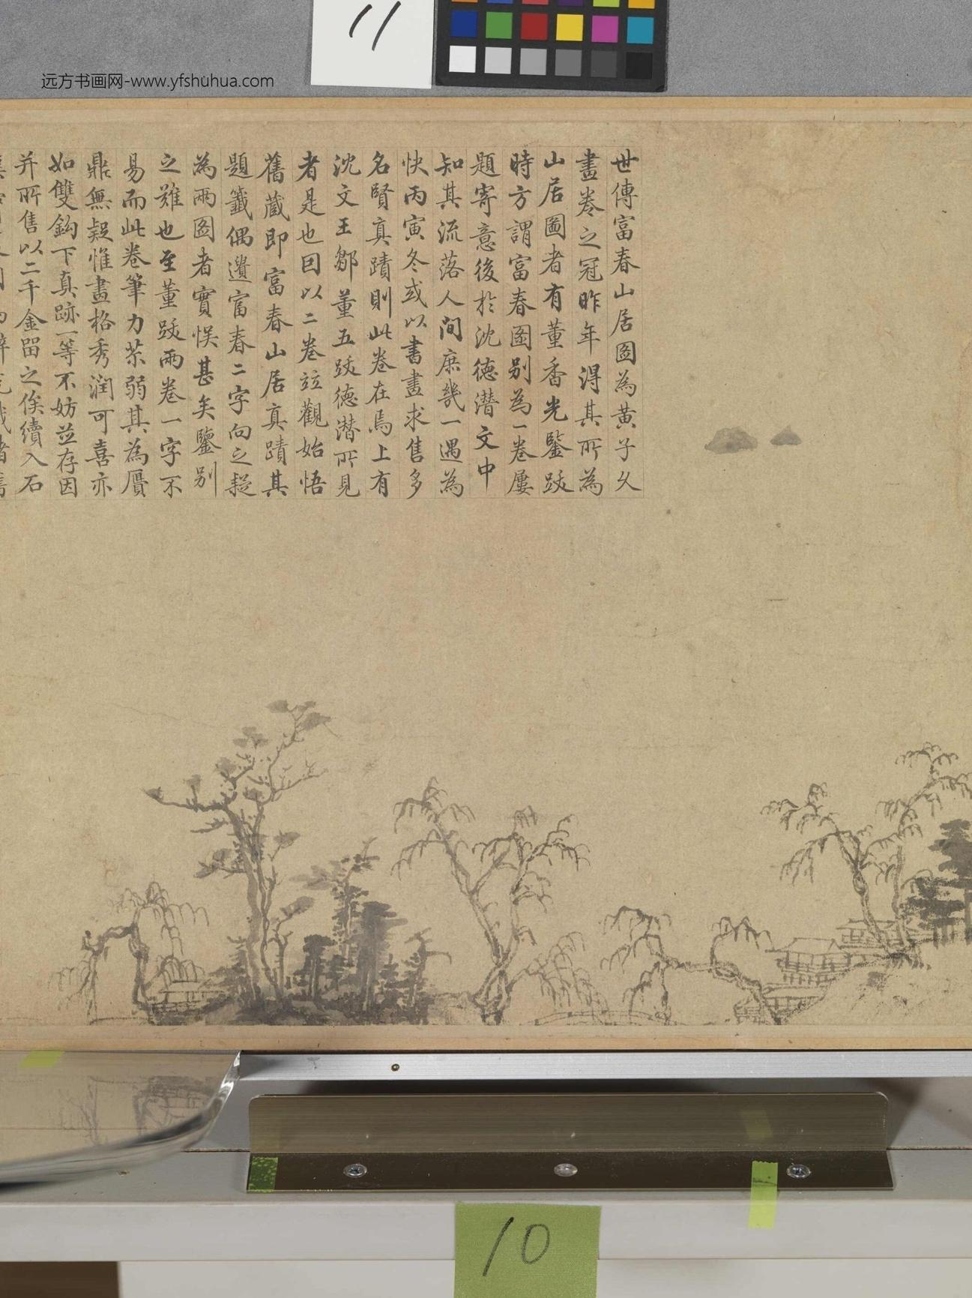 11
远方书画网-www.yfshuhua.com
世傳富春山居圖為黄子久
畫卷之冠昨年得其所為
山居圖者有董香光鑒跋
時方謂富春圖别為一卷屢
題寄意後於沈德潛文中
知其流落人間庶幾一遇為
快丙寅冬或以書畫求售多
名賢真蹟則此卷在焉上有
沈文王鄒董五跋德潛所見
者是也因以二卷竝觀始悟
舊藏即富春山居真蹟其
題籤偶遺富春二字向之疑
為兩圖者實悮甚矣鑒别
之難也至董跋兩卷一字不
易而此卷筆力苶弱其為贋
鼎無疑惟畫格秀潤可喜亦
如雙鈎下真跡一等不妨竝存因
并所售以二千金留之俟續入石
10